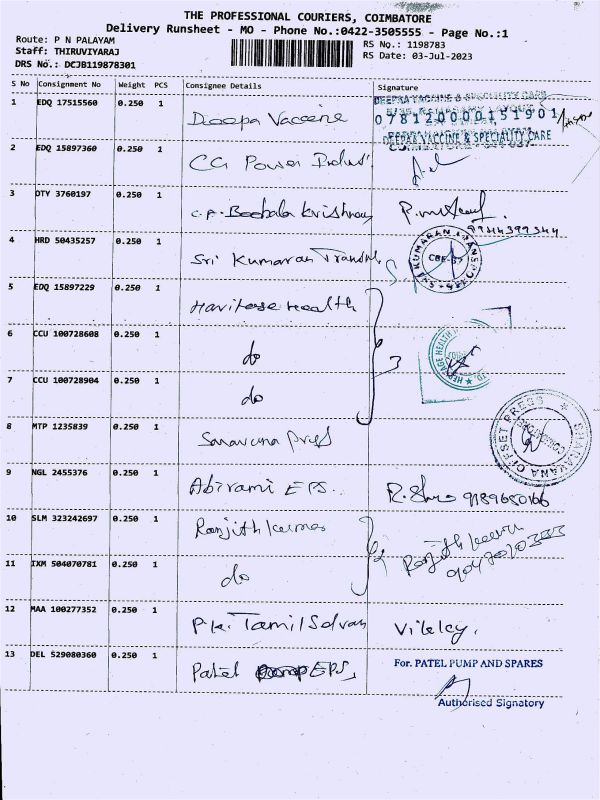 THE PROFESSIONAL COURIERS, COIMBATORE
Delivery Runsheet - MO - Phone No.:0422-3505555 - Page No.:1
Route: P N PALAYAM
RS No.: 1198783
Staff: THIRUVIYARAJ
RS Date: 03-Jul-2023
DRS No.: DCJB119878301
S No Consignment No Weight PCS Consignee Details Signature
1 EDQ 17515560 0.250 1 Deepa Vaccine
DEEPAA VACCINE & SPECIALITY CARE
078120000151901
DEEPAA VACCINE & SPECIALITY CARE
2 EDQ 15897360 0.250 1 CG Power Indust
3 DTY 3760197 0.250 1 C.P. Krishnan
9944399344
4 HRD 50435257 0.250 1 Sri Kumaran Transport
SRI KUMARAN TRANSPORT
CBE-37
5 EDQ 15897229 0.250 1 Heritage Health
6 CCU 100728608 0.250 1 do
3
HERITAGE HEALTH
7 CCU 100728904 0.250 1 do
8 MTP 1235839 0.250 1 Saravana Press
SHARAVANA OFFSET PRESS
COIMBATORE
9 NGL 2455376 0.250 1 Abirami EPS
10 SLM 323242697 0.250 1 Ranjith kumar
Ranjith kumar
11 IXM 504070781 0.250 1 do
12 MAA 100277352 0.250 1 P.K. Tamil Selvan
13 DEL 529080360 0.250 1 Patel EPS
For. PATEL PUMP AND SPARES
Authorised Signatory